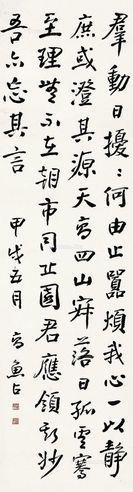 羣動日擾擾何由止囂煩我心一以靜
庶或澄其源天高四山寂落日孤雲騫
至理無不在朝市同丘園君應領斯妙
吾亦忘其言
甲戌五月 高魚占